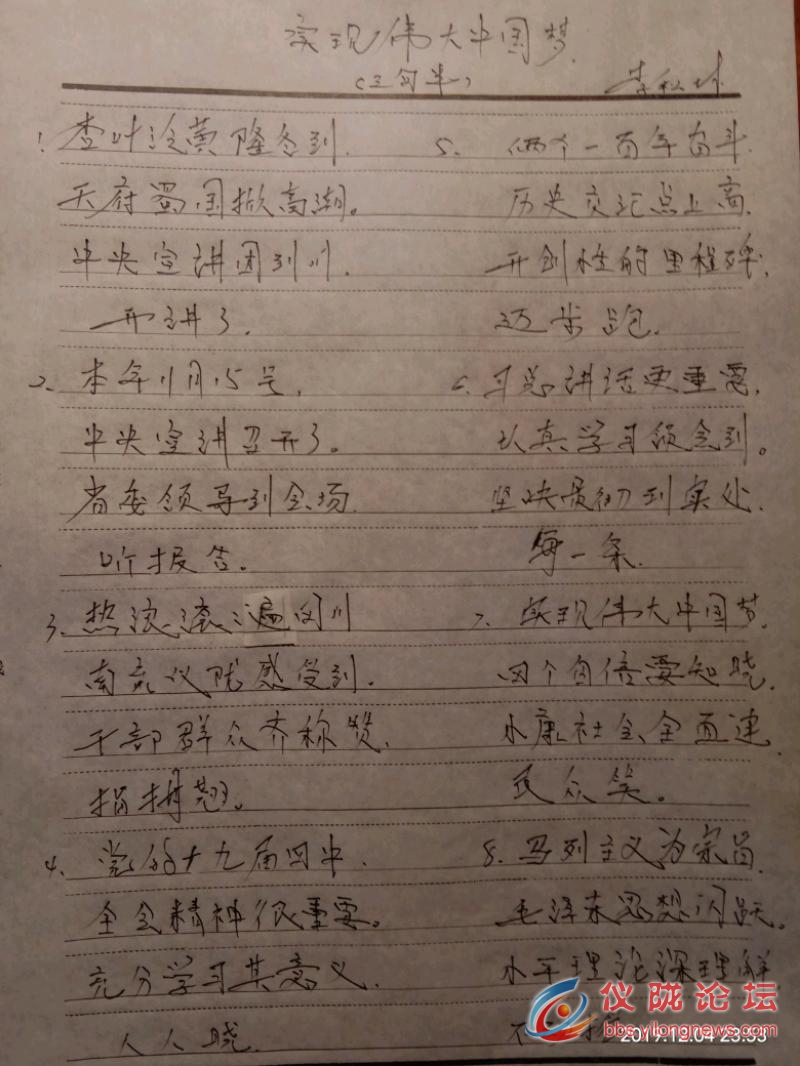 实现伟大中国梦.
(三句半)
李秋
1. 杏叶泠黄隆冬到.
天府蜀国掀高潮。
中央宣讲团到川.
开讲了.
2. 本年11月15号,
中央宣讲召开了。
省委领导到会场.
听报告.
3、热浪滚滚遍四川
南充仪陇感受到.
干部群众齐称赞,
拇翘。
4、党的十九届四中.
全会精神很重要。
充分学习其意义.
人人晓.
5. 俩个一百年奋斗.
历史交汇点上高.
开创性的里程碑,
迈步跑.
6. 习总讲话更重要,
认真学习领会到。
坚决贯彻到实处.
每一条.
7. 实现伟大中国梦.
四个自信要知晓.
小康社会全面建.
民众笑。
8. 马列主义为宗旨.
毛泽东思想闪跃.
小平理论深理解
不
仪陇论坛
bbs.yilongnews.com
2019.12.04 23:53